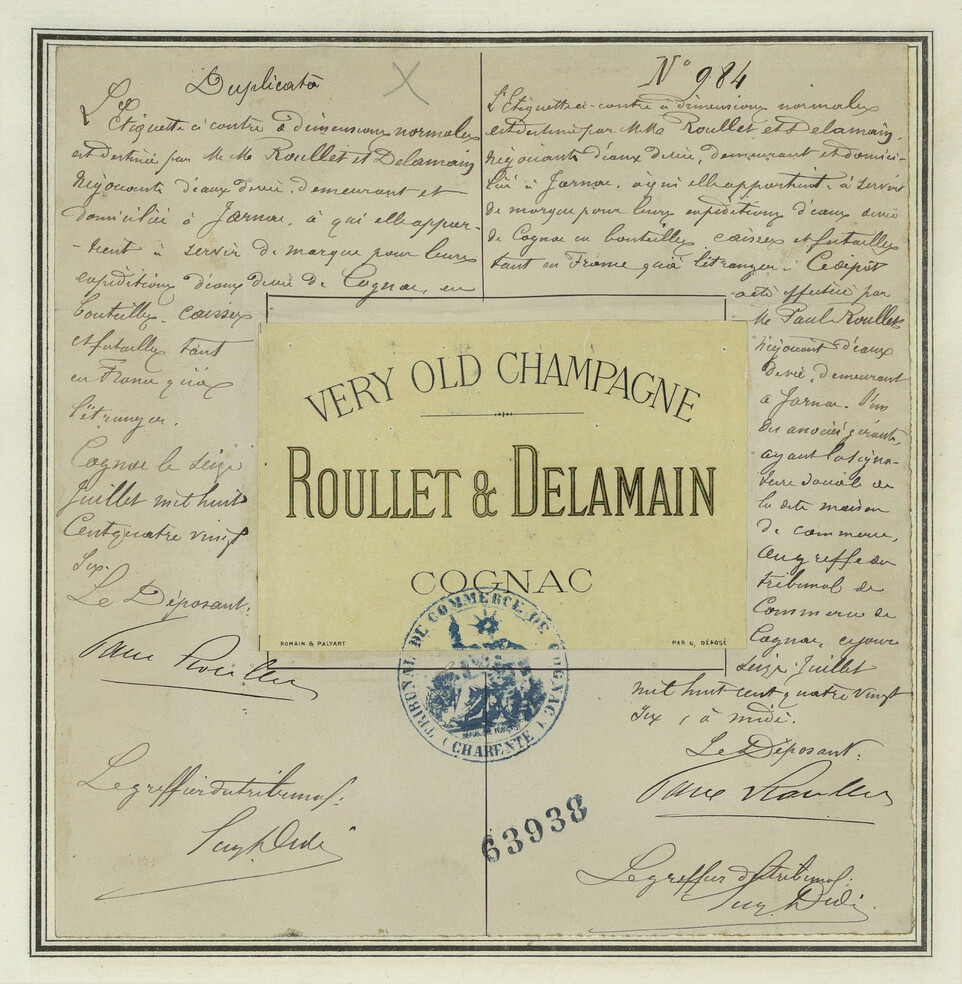 Duplicata
L'Etiquette ci contre à dimensions normales
est destinée par MM. Roullet et Delamain
négociants d'eaux de vie, demeurant et
domiciliés à Jarnac, à qui elle appar-
-tient à servir de marque pour leurs
expéditions d'eaux de vie de Cognac, en
bouteilles, caisses
et futailles tant
en France qu'à
l'étranger.
Cognac le seize
juillet mil huit
cent quatre vingt
six.
Le Déposant.
Paul Roullet
Le greffier du tribunal.
N° 984
L'Etiquette ci-contre à dimensions normales
est destinée par MM. Roullet et Delamain,
négociants d'eaux de vie, demeurant et domici-
liés à Jarnac, à qui elle appartient, à servir
de marque pour leurs expéditions d'eaux de vie
de Cognac en bouteilles, caisses et futailles
tant en France qu'à l'étranger. Ce dépôt
a été effectué par
M. Paul Roullet
négociant d'eaux
de vie, demeurant
à Jarnac. l'un
des associés gérants,
ayant la signa-
ture sociale de
la dite maison
de commerce,
au greffe du
tribunal de
Commerce de
Cognac, ce jour
seize juillet
mil huit cent quatre vingt
six, à midi.
Le Déposant.
Paul Roullet
Le greffier du tribunal.
VERY OLD CHAMPAGNE
ROULLET & DELAMAIN
COGNAC
ROMAIN & PALYART
PAR G, DÉPOSÉ
TRIBUNAL DE COMMERCE DE COGNAC
(CHARENTE)
63938